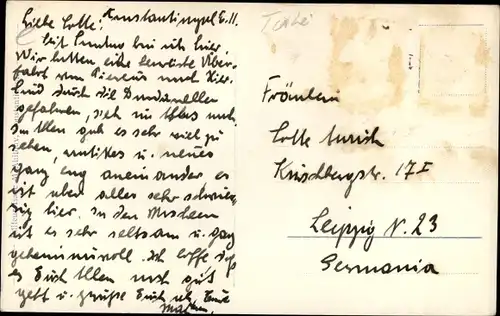 Liebe Lotte! Konstantinopel 6.11.
Seit Samstag bin ich hier.
Wir hatten eine bewegte Über-
fahrt von Piräus nach hier.
Sind durch die Dardanellen
gefahren,
In Athen gab es sehr viel zu
sehen, antikes u. neues
ganz eng aneinander es
ist aber alles sehr
hier. In den Moscheen
ist es sehr seltsam u. ganz
geheimnisvoll. Ich hoffe daß
es Euch Allen noch gut
geht u. grüße Euch als Eure
Türkei
Fräulein
Lotte
Kirschbergstr. 17 I
Leipzig N. 23
Germania